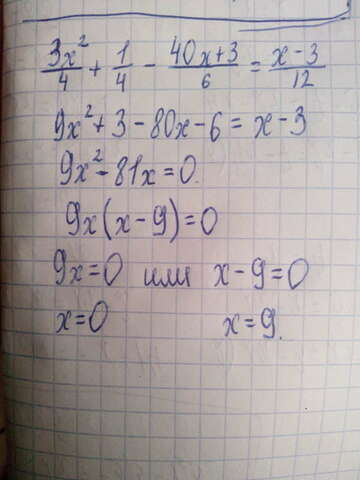 3x²/4 + 1/4 - 40x+3/6 = x-3/12
9x²+3-80x-6=x-3
9x²-81x=0.
9x(x-9)=0
9x=0 или x-9=0
x=0 x=9.